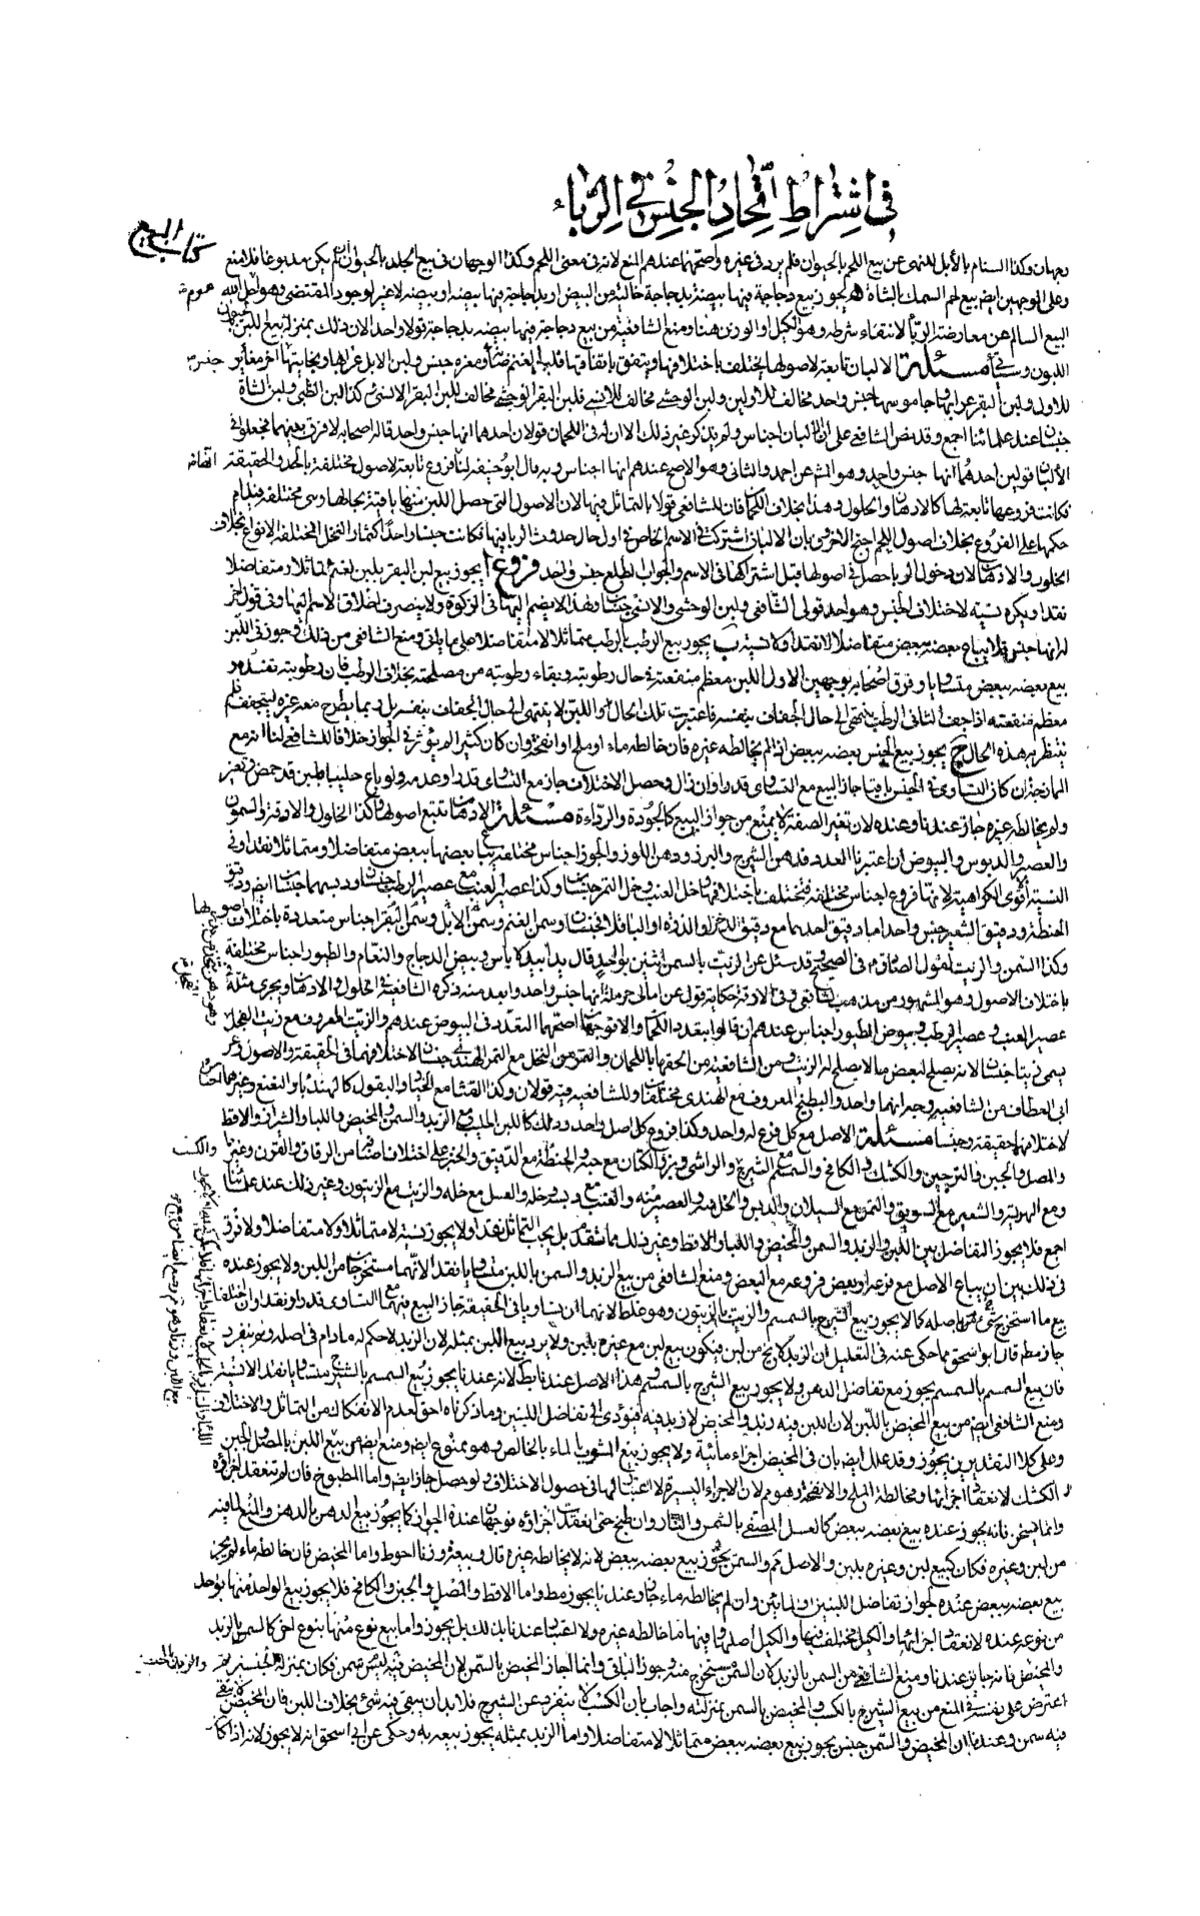 في اشتراط اتحاد الجنس في الرباء
كتاب البيع
وجهان وكذا السنام بالألية للنهى عن بيع اللحم بالحيوان فلم يرد في غيره واصحهما عندهم المنع لانه في معنى اللحم وكذا الوجهان في بيع الجلد بالحيوان ان لم يكن مدبوغا فلا منع
وعلى الوجهين ايضا بيع لحم السمك بالشاة يجوز بيع دجاجة فيها بيضة بدجاجة خالية من البيض او بدجاجة فيها بيضة او ببيضة لا غير لوجود المقتضى وهو احل الله
البيع السالم عن معارضة الربا لانتفاء شرطه وهو الكيل او الوزن هنا ومنع الشافعية من بيع دجاجة فيها بيضة بدجاجة قولا واحدا لان ذلك بمنزلة بيع اللبن
اللبون مسئلة الالبان تابعة لاصولها يختلف باختلافها ويتفق باتفاقها فلبن الغنم ضأنه ومعزه جنس ولبن الابل عرابها وبخاتيها اخر مغاير
للاول ولبن البقر عرابها وجاموسها جنس واحد مخالف للاولين ولبن الوحشي مخالف للانسي فلبن البقر الوحشي مخالف للبن البقر الانسي وكذا لبن الظبي ولبن الشاة
جنسان عند علمائنا اجمع وقد نص الشافعي على ان الالبان اجناس ولم يذكر غير ذلك الا ان له في اللحمان قولان احدهما انها جنس واحد قال اصحابه لا فرق بينهما فجعلوا في
الألبان قولين احدهما انها جنس واحد وهو المشهور عن احمد والثاني وهو الاصح عندهم انها اجناس وبه قال ابو حنيفة لنا فروع تابعة لاصول مختلفة بالحد والحقيقة
فكانت فروعها تابعة لها كالادهان والخلول وهذا بخلاف اللحمان فان للشافعي قولا بالتماثل فيها لان الاصول التي حصل اللبن منها باقية بحالها وهى مختلفة فيدام
حكمها على الفروع بخلاف اصول اللحم احتج الاخرون بان الالبان اشتركت في الاسم الخاص في اول حال حدوث الربا فيها فكانت جنسا واحدا كثمار النخل المختلفة الانواع بخلاف
الخلول والادهان لان دخول الربا حصل في اصولها قبل اشتراكها في الاسم والجواب الطلع جنس واحد فروع ا يجوز بيع لبن البقر بلبن الغنم متماثلا ومتفاضلا
نقدا ويكره نسيئة لاختلاف الجنس وهو احد قولي الشافعي ولبن الوحشى والانسي جنسان ولهذا لا يضم اليها في الزكوة ولا ينصرف اطلاق الاسم اليها وفي قول اخر
له انها جنس فلا يباع بعضه ببعض متفاضلا لا نقدا ولا نسيئة ب يجوز بيع الرطب بالرطب متماثلا لا متفاضلا على ما ياتي ومنع الشافعي من ذلك وجوز في اللبن
بيع بعضه ببعض متساويا وفرق اصحابه بوجهين الاول اللبن معظم منفعته في حال رطوبته وبقاء رطوبته من مصلحته بخلاف الرطب فان رطوبته تفسده
معظم منفعته اذا جف الثاني الرطب ينتهى الى حال الجفاف بنفسه فاعتبرت تلك الحال واللبن لا ينتهى الى حال الجفاف بنفسه بل ربما يطرح معه غيره ليتجفف فلم
ينتظر به هذه الحال ج يجوز بيع الجنس بعضه ببعض اذا لم يخالطه غيره فان خالطه ماء او ملح او انفحة وان كان كثيرا لم يؤثر في الجواز خلافا للشافعي لنا انه مع
الممازجة ان كان التساوى في الجنس باقيا جاز البيع مع التساوى قدرا وان زال وحصل الاختلاف جاز مع التساوى قدرا وعدمه ولو باع حليبا بلبن قد حمض وتغير
ولم يخالطه غيره جاز عندنا وعنده لان تغير الصفة لا يمنع من جواز البيع كالجودة والرداءة مسئلة الادهان تتبع اصولها وكذا الخلول والادقة والسمون
والعصير والدبوس والبيوض ان اعتبرنا العدد فدهن الشيرج والبزر ودهن اللوز والجوز اجناس مختلفة يباع بعضها ببعض متفاضلا ومتماثلا نقدا وفي
النسيئة اقوى الكراهية لانها فروع اجناس مختلفة فتختلف باختلافها وخل العنب وخل التمر جنسان وكذا عصير العنب مع عصير الرطب جنسان ودبسهما جنسان ايضا ودقيق
الحنطة ودقيق الشعير جنس واحد اما دقيق احدهما مع دقيق الدخن او الذرة او الباقلا فجنسان وسمن الغنم وسمن الابل وسمن البقر اجناس متعددة باختلاف اصولها
وكذا السمن والزيت لقول الصادق ع في الصحيح وقد سئل عن الزيت بالسمن اثنين بواحد قال يدا بيد لا بأس وبيض الدجاج والنعام والطيور اجناس مختلفة
باختلاف الاصول وهو المشهور من مذهب الشافعي وفي الادقة حكاية قول عن امالي حرملة انها جنس واحد وابعد منه ذكره الشافعية في الخلول والادهان ويجرى مثله في
عصير العنب وعصير الرطب وبيوض الطيور اجناس عندهم ان قالوا بتعدد اللحمان والا فوجهان اصحهما التعدد في البيوض عندهم والزيت المعروف مع زيت الفجل
يسمى زيتا جنسان لانه يصلح لبعض ما لا يصلح له الزيت ومن الشافعية من الحقها باللحمان والتمر من النخل مع التمر الهندي جنسان لاختلافهما في الحقيقة والاصول وعن
ابي العطاف من الشافعية وجه انهما واحد والبطيخ المعروف مع الهندي مختلفان وللشافعية فيه قولان وكذا القثا مع الخيار والبقول كالهندبا والنعنع وغيرهما اجناس
لاختلافها حقيقة وجنسا مسئلة الاصل مع كل فرع له واحد وكذا فروع كل اصل واحد وذلك كاللبن الحليب مع الزبد والسمن والمخيض واللبا والشيراز والاقط
والمصل والجبن والترجين والكشك والكامخ والسمسم مع الشيرج والراشي وبزر الكتان مع حبه والحنطة مع الدقيق والخبز على اختلاف اصنافه من الرقاق والفرن وغيرها
ومع الهريسة والشعير مع السويق والتمر مع السيلان والدبس والخل منه والعصير منه والعنب مع دبسه وخله والعسل مع خله والزيت مع الزيتون وغير ذلك عند علمائنا
اجمع فلا يجوز التفاضل بين اللبن والزبد والسمن والمخيض واللبا والاقط وغير ذلك مما تقدم بل يجب التماثل نقدا ولا يجوز نسيئة لا متماثلا ولا متفاضلا ولا فرق
في ذلك بين ان يباع الاصل مع فرعه او بعض فروعه مع البعض ومنع الشافعي من بيع الزبد والسمن باللبن متساويا نقدا لانهما مستخرجان من اللبن ولا يجوز عنده
بيع ما استخرج من شيء باصله كما لا يجوز بيع الشيرج بالسمسم والزيت بالزيتون وهو غلط لانهما ان تساويا في الحقيقة جاز البيع فيهما مع التساوى قدرا ونقدا وان اختلفا
جاز مطلقا قال ابو اسحق مما حكى عنه في التعليل ان الزبد لا يخ من لبن فيكون بيع لبن مع غيره بلبن ولا يرد بيع اللبن بمثله لان الزبد لا حكم له ما دام في اصله ولم ينفرد
فان بيع السمسم بالسمسم يجوز مع تفاضل الدهن ولا يجوز بيع الشيرج بالسمسم وهذا الاصل عندنا باطل لانه عندنا يجوز بيع السمسم بالشيرج متساويا نقدا لا نسيئة
ومنع الشافعي ايضا من بيع المخيض باللبن لان اللبن فيه زبد والمخيض لا زبد فيه فيؤدى الى تفاضل اللبنين وما ذكرناه احق لعدم الانفكاك من التماثل والاختلاف
وعلى كلا التقديرين يجوز وقد علل ايضا بان في المخيض اجزاء مائية ولا يجوز بيع المشوب بالماء بالخالص وهو ممنوع ايضا ومنع ايضا من بيع اللبن بالمصل والجبن
او الكشك لانعقاد اجزائها ومخالطة الملح والانفحة وهو مم لان الاجزاء اليسيرة لا اعتبار بها في حصول الاختلاف ولو حصل جاز ايضا واما المطبوخ فان لم تنعقد اجزاؤه
وانما يسخن فانه يجوز عنده بيع بعضه ببعض كالعسل المصفى بالشمس والنار وان طبخ حتى انعقدت اجزاؤه فوجهان عنده الجواز كما يجوز بيع الدهن بالدهن والمنع لما فيه
من لبن وغيره فكان كبيع لبن وغيره بلبن والاصل مم والسمن يجوز بيع بعضه ببعض لانه لا يخالطه غيره قال ويعتبر وزنا احوط واما المخيض فان خالطه ماء لم يجز
بيع بعضه ببعض عنده لجواز تفاضل اللبنين والمائين وان لم يخالطه ماء جاز وعندنا يجوز مطلقا واما الاقط والمصل والجبن والكامخ فلا يجوز بيع الواحد منها بواحد
من نوعه عنده لانعقاد اجزائها والكيل مختلف فيها والكيل اصلها وفيها ما خالطه غيره ولا اعتبار عندنا بذلك بل يجوز واما بيع نوع منها بنوع اخر كالسمن بالزبد
والمخيض فانه جايز عندنا ومنع الشافعي من السمن بالزبد لان السمن مستخرج منه وجوز الباقي وانما اجاز المخيض بالسمن لان المخيض ليس فيه سمن فكان بمنزلة الجنسين
اعترض على نفسه في المنع من بيع الشيرج بالكسب والمخيض بالسمن بمنزلته واجاب بان الكسب لا ينفرد عن الشيرج فلا بد ان يبقى فيه شئ بخلاف اللبن فان المخيض لا يبقى
فيه سمن وعندنا ان المخيض والسمن جنس يجوز بيع بعضه ببعض متماثلا لا متفاضلا واما الزبد بمثله يجوز بيعه به وحكى عن ابي اسحق انه لا يجوز لانه اذا كان